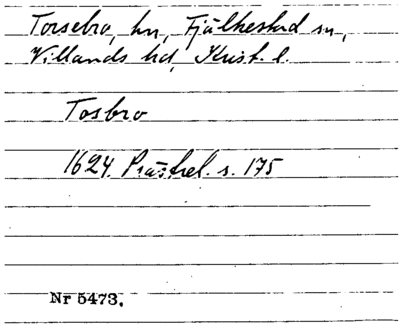 Torsebro, hn, Fjälkestad sn,
Villands hd, Krist. l.
Tosbro
1624 Prästrel. s. 175
Nr 5473.